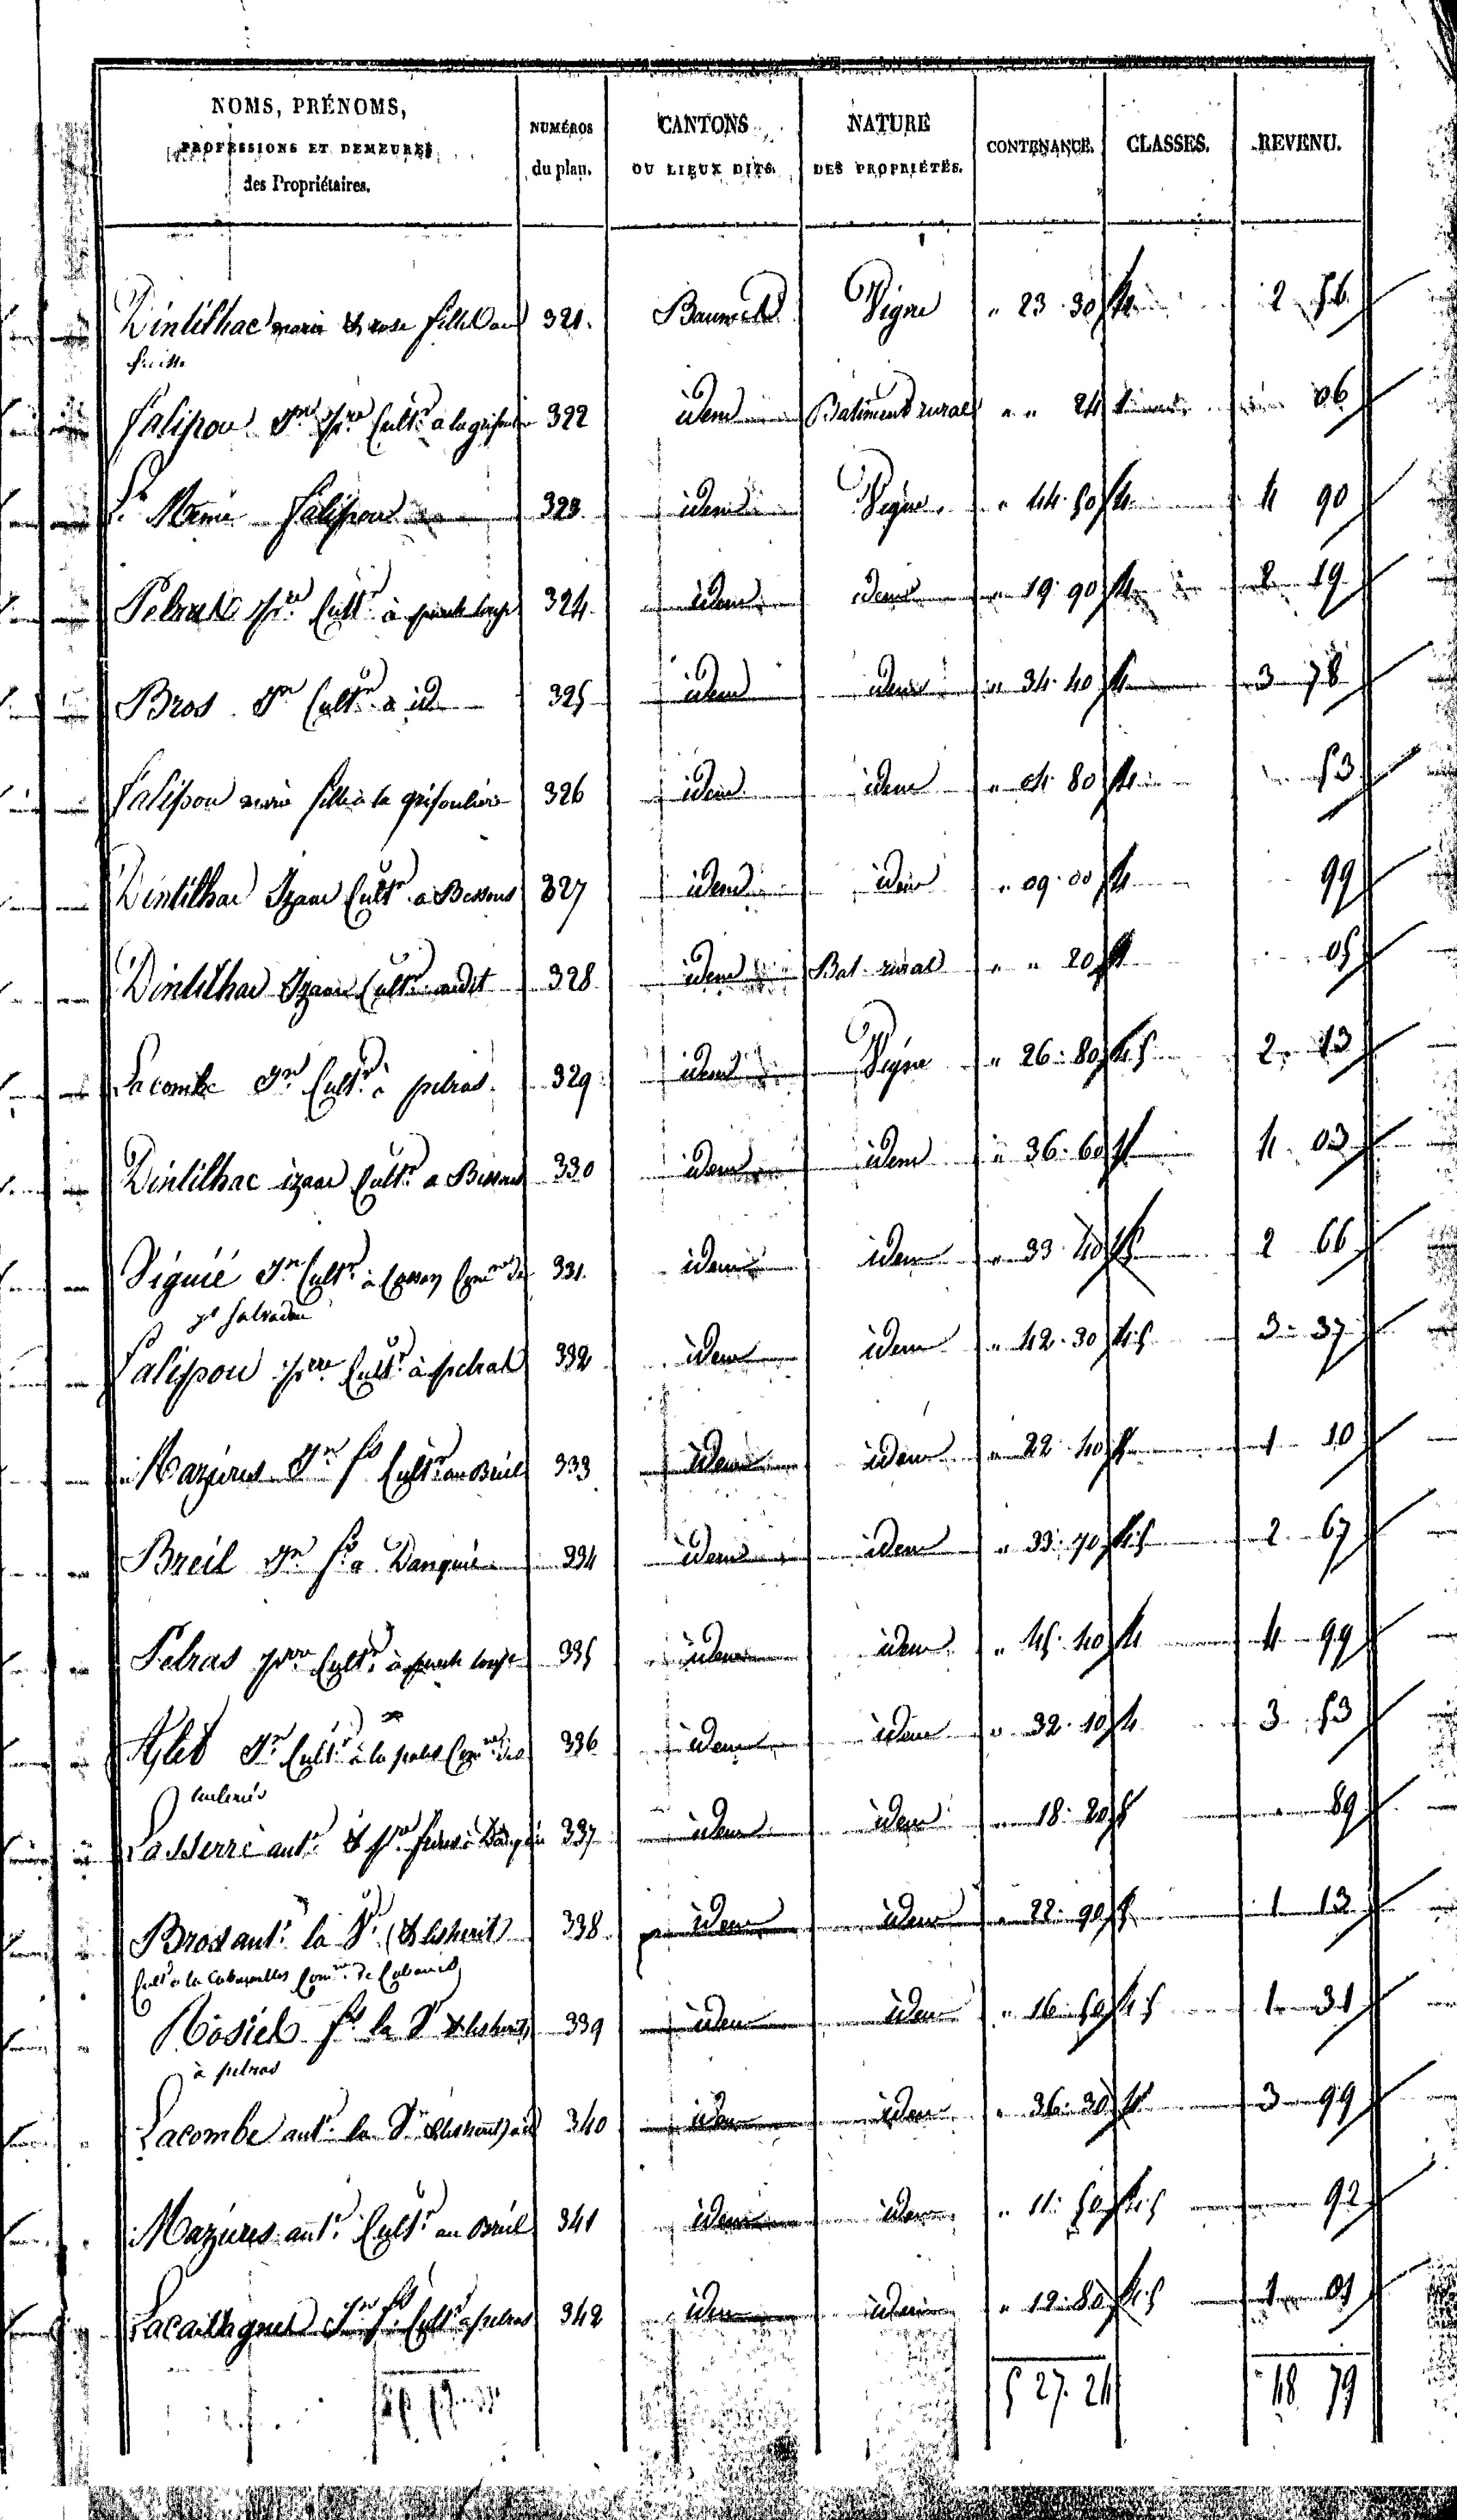 NOMS, PRÉNOMS, PROFESSIONS ET DEMEURES des Propriétaires. NUMÉROS du plan. CANTONS OU LIEUX DITS. NATURE DES PROPRIÉTÉS. CONTENANCE. CLASSES. REVENU.
Dintilhac marie & rose fille 321. Vigne " 23 30 4 2 56
Falipou Jn Pre Cultr a la 322 idem Batiment rural " " 24 06
Le Même Falipou 323 idem Vigne " 44 50 4 4 90
Pelrat Pre Cultr à 324 idem idem " 19 90 4 2 19
Bros Jn Cultr a id 325 idem idem " 34 40 4 3 78
Falipou marie fille à la grifouliere 326 idem idem " 04 80 4 53
Dintilhac Izaac Cultr a Bessous 327 idem idem " 09 00 4 99
Dintilhac Izaac Cultr audit 328 idem Bat. rural " " 20 05
Lacombe Jn Cultr à pelras 329 idem Vigne " 26 80 4.5 2 13
Dintilhac izaac Cultr a Bessous 330 idem idem " 36 60 4 4 03
Viguié Jn Cultr à Comne de 331. idem idem " 33 40 4.5 2 66
st Salvadou
Falipou pre Cultr à pelrat 332 idem idem " 42 30 4.5 3 37
Mazieres Jn fs Cultr au Breil 333 idem idem " 22 40 5 1 10
Breil Jn fs a Danguié 334 idem idem " 33 70 4.5 2 67
Pelras pre Cultr à 335 idem idem " 45 40 4 4 99
Jn Cultr à la Comne des 336 idem idem " 32 10 4 3 53
Lasserre ant. & Pre freres à 337 idem idem 18 20 5 89
Bros ant. la Ve (& les herit) 338 idem idem " 22 90 5 1 13
Cultr a la Cabanelles Comne de Cabanes
Rosiel fs la Ve & les herit 339 idem idem " 16 50 4.5 1 31
à pelras
Lacombe ant. la Ve & les herit) a id 340 idem idem " 36 30 4 3 99
Mazieres ant. Cultr au Breil 341 idem idem " 11 50 4.5 92
Jn fs Cultr a pelras 342 idem idem " 12 80 4.5 1 01
5 27 24 48 79